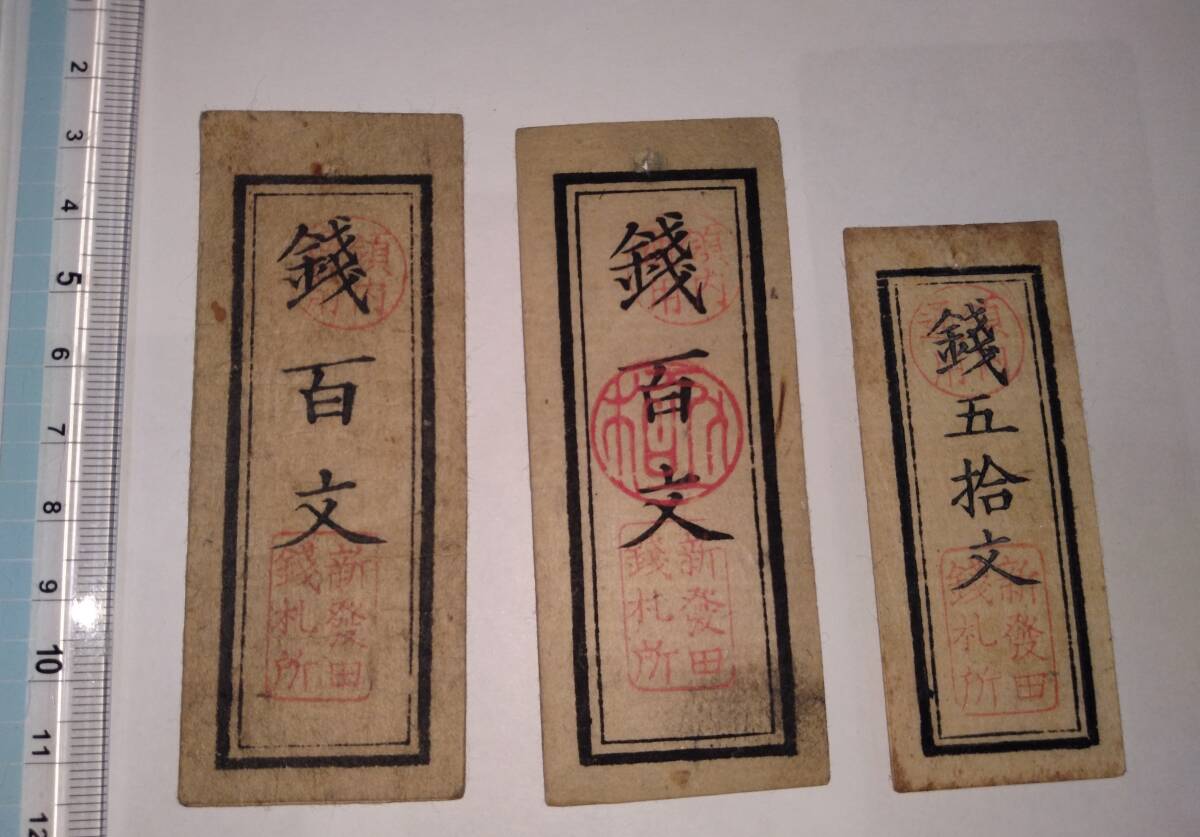 2
3
4
5
6
7
8
9
10
11
12
錢百文
領内
新發田
錢札所
錢百文
領内
新發田
錢札所
錢五拾文
新發田
錢札所